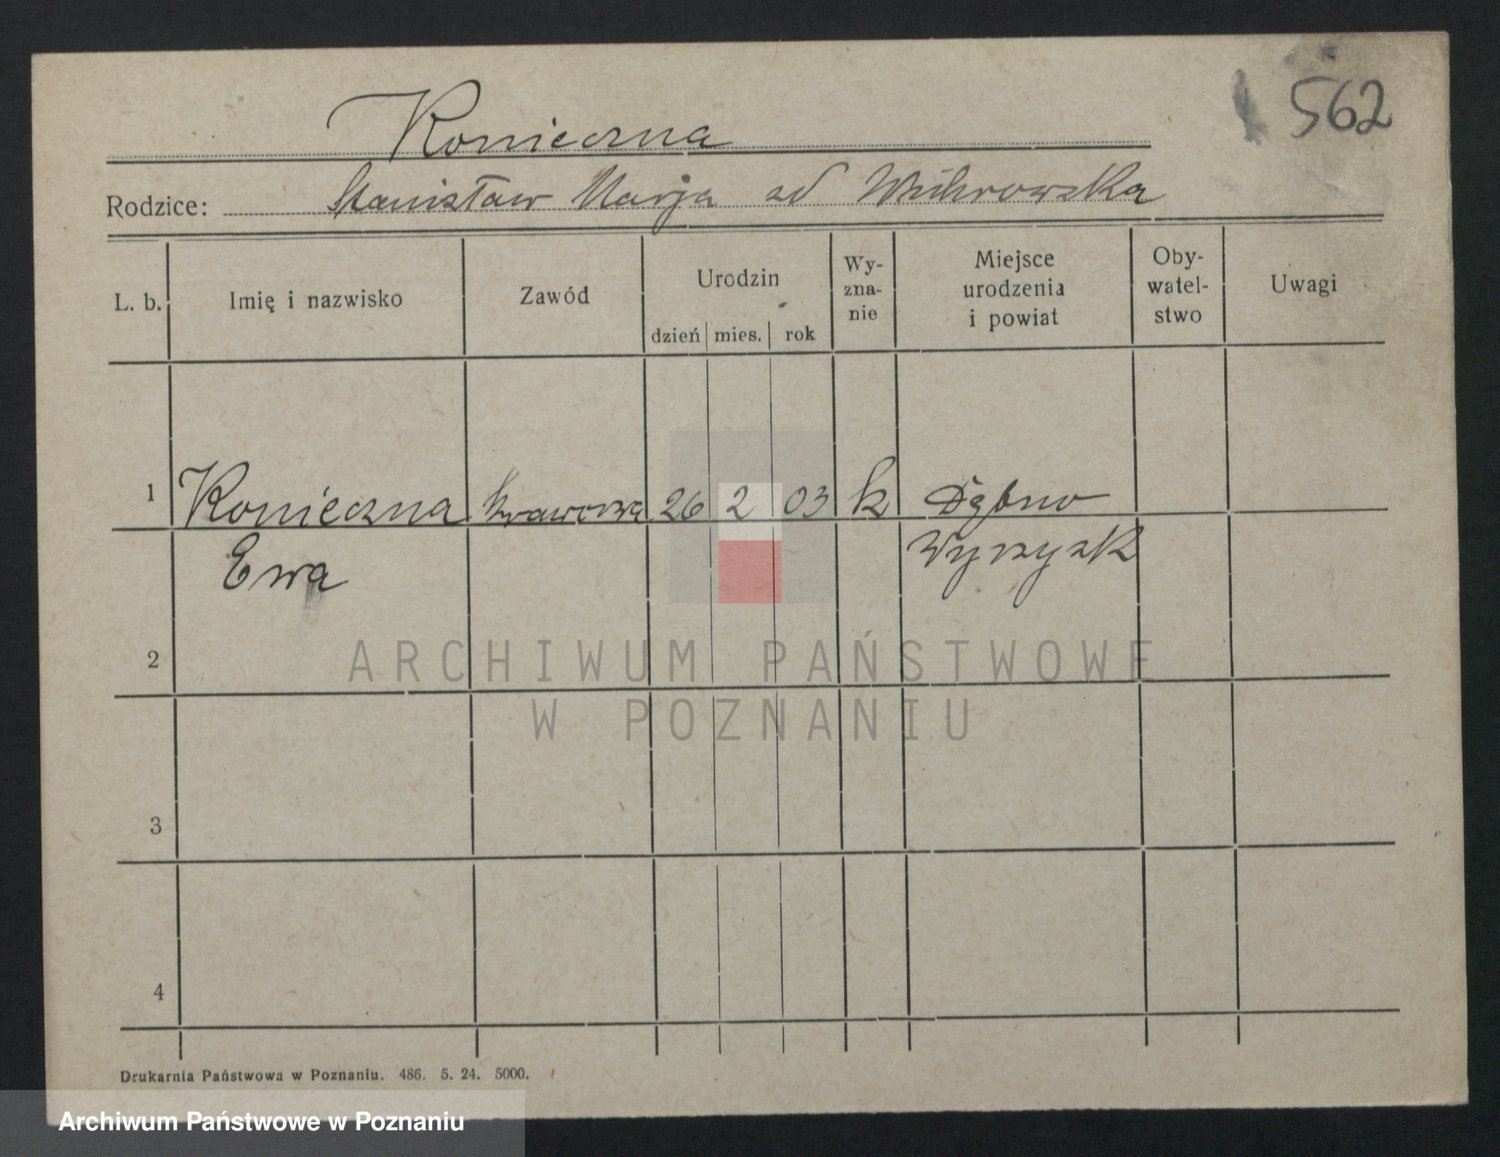 562
Konieczna
Rodzice: Stanisław Marja od
L. b. Imię i nazwisko Zawód Urodzin dzień mies. rok Wy-zna-nie Miejsce urodzenia i powiat Oby-watel-stwo Uwagi
1 Konieczna krawcowa 26 2 03 k Dębno
Ewa Wyrzysk
2
ARCHIWUM PAŃSTWOWE
W POZNANIU
3
4
Drukarnia Państwowa w Poznaniu. 486. 5. 24. 5000.
Archiwum Państwowe w Poznaniu